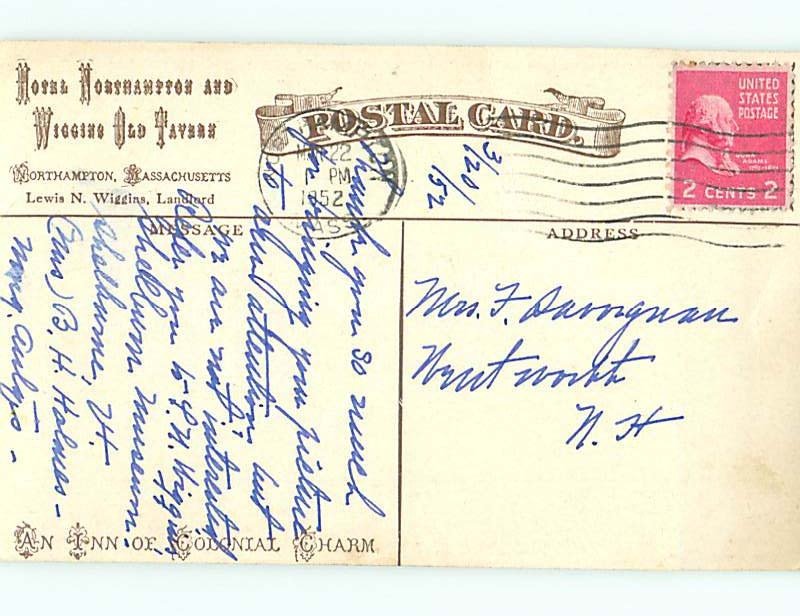 HOTEL NORTHAMPTON AND
WIGGINS OLD TAVERN
NORTHAMPTON, MASSACHUSETTS
Lewis N. Wiggins, Landlord
POSTAL CARD.
22
1 PM
1952
MASS
UNITED
STATES
POSTAGE
JOHN
ADAMS
2 CENTS 2
3/20/52
MESSAGE
ADDRESS
Thank you so much
for bringing your picture
to our attention but
we are not interested.
refer you to L. N. Wiggins
Shelburne Museum.
Shelburne, Vt.
(Mrs) B. H. Holmes –
Mrs. F. Davorgnan
Wentworth
N. H
AN INN OF COLONIAL CHARM